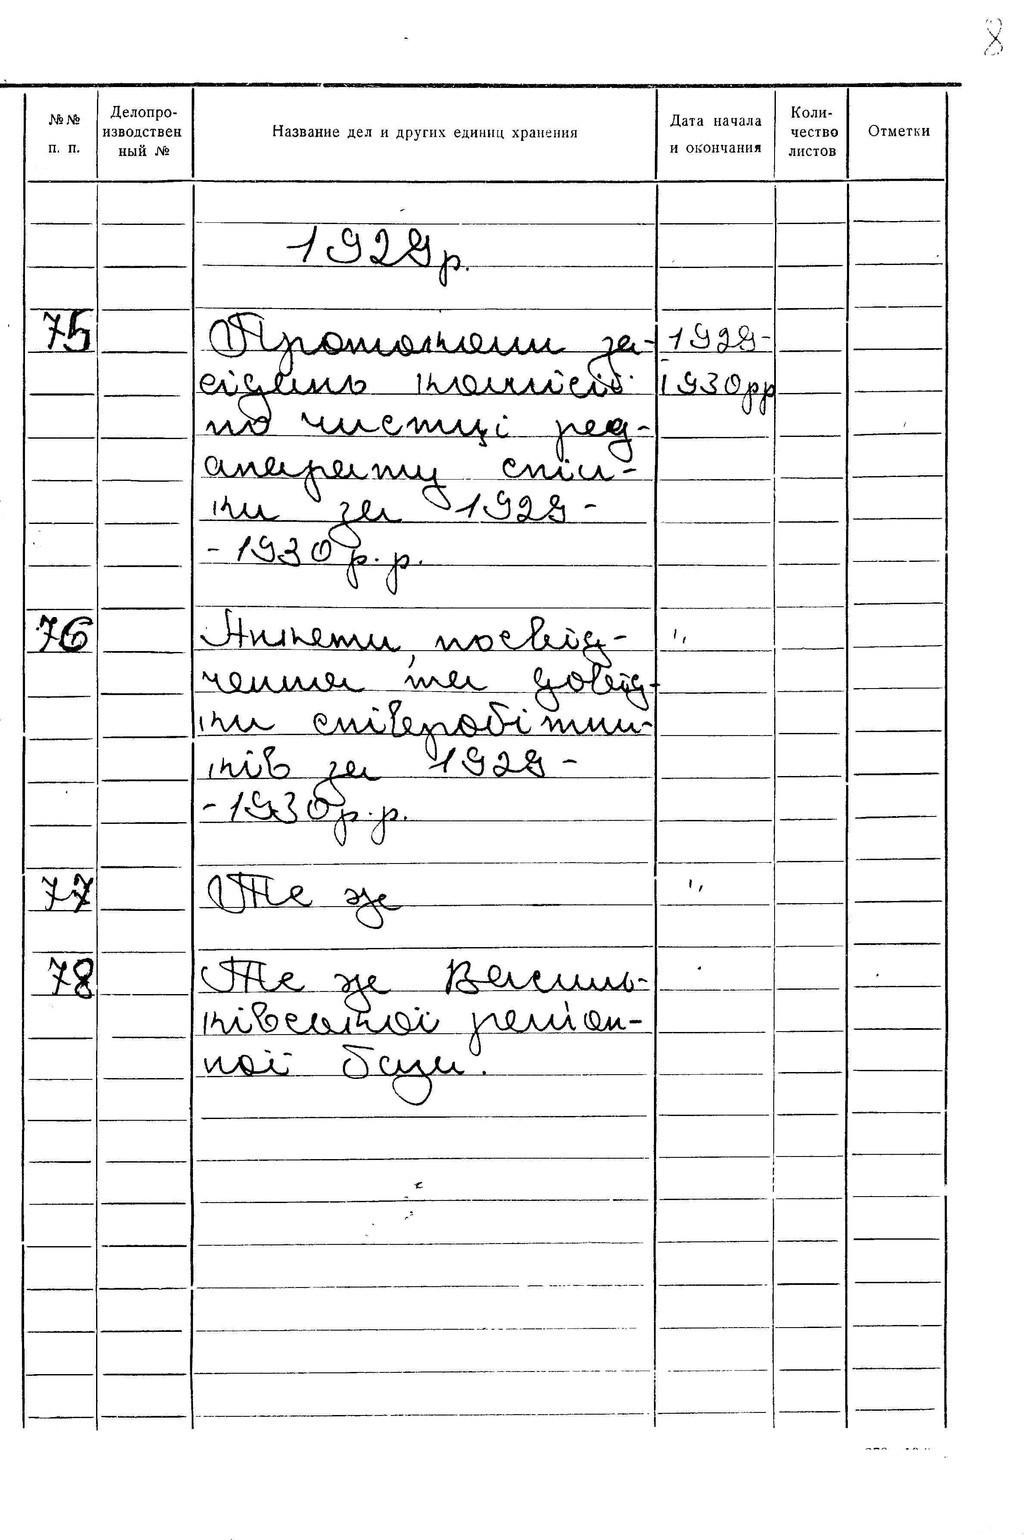 8
№№ п. п.
Делопро-изводствен ный №
Название дел и других единиц хранения
Дата начала и окончания
Коли-чество листов
Отметки
1929 р.
75 Протоколи за- 1929-
сідань комісій 1930 рр
по чистці рад-
апарату спіл-
ки за 1929 -
- 1930 р.р.
76 Анкети, посвід- "
чення та довід-
ки співробітни-
ків за 1929 -
- 1930 р.р.
77 Те же "
78 Те же Василь-
ківської районної
ної бази.